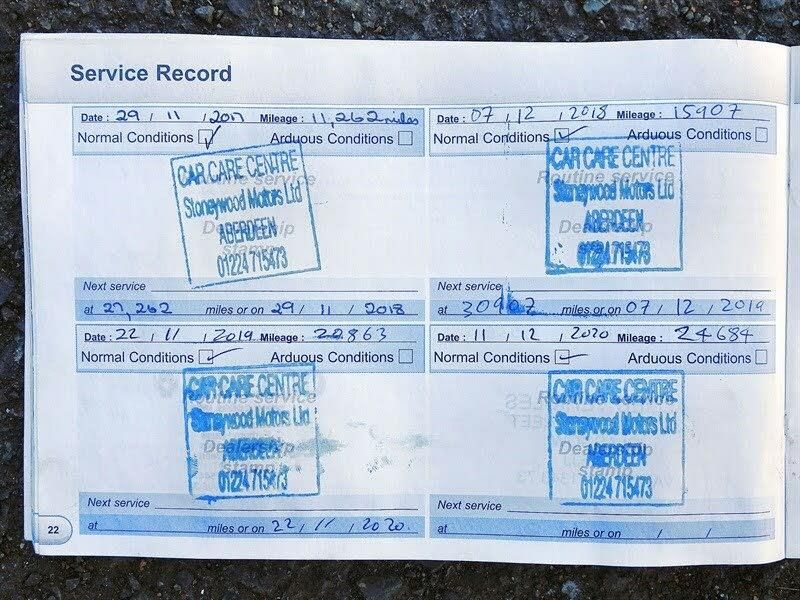 Service Record
Date : 29 / 11 / 2017 Mileage : 11,262 miles
Normal Conditions Arduous Conditions
CAR CARE CENTRE
Routine service
Stoneywood Motors Ltd
Dealership
ABERDEEN
stamp
01224 715473
Next service
at 27,262 miles or on 29 / 11 / 2018
Date : 07 / 12 / 2018 Mileage : 15907
Normal Conditions Arduous Conditions
CAR CARE CENTRE
Routine service
Stoneywood Motors Ltd
Dealership
ABERDEEN
stamp
01224 715473
Next service
at 30907 miles or on 07 / 12 / 2019
Date : 22 / 11 / 2019 Mileage : 20863
Normal Conditions Arduous Conditions
CAR CARE CENTRE
Routine service
Stoneywood Motors Ltd
Dealership
ABERDEEN
stamp
01224 715473
Next service
at miles or on 22 / 11 / 2020.
Date : 11 / 12 / 2020 Mileage : 24684
Normal Conditions Arduous Conditions
CAR CARE CENTRE
Routine service
Stoneywood Motors Ltd
Dealership
ABERDEEN
stamp
01224 715473
Next service
at miles or on / /
22